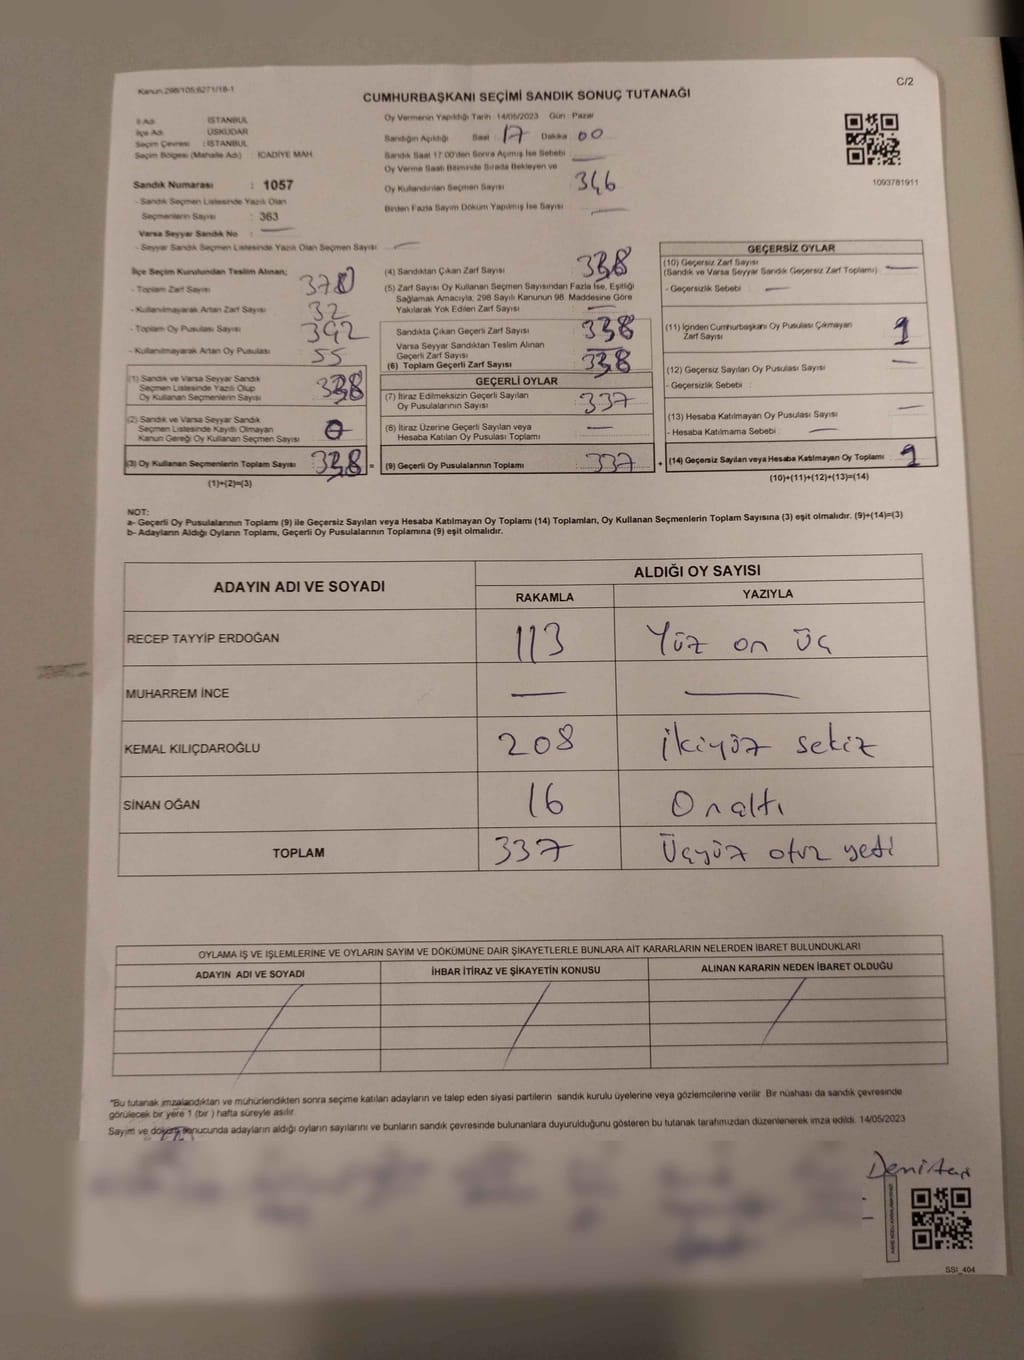 Kanun:298/105;6271/18-1
C/2
CUMHURBAŞKANI SEÇİMİ SANDIK SONUÇ TUTANAĞI
İl Adı : İSTANBUL
İlçe Adı : ÜSKÜDAR
Seçim Çevresi : İSTANBUL
Seçim Bölgesi (Mahalle Adı) : İCADİYE MAH.
Sandık Numarası : 1057
- Sandık Seçmen Listesinde Yazılı Olan
Seçmenlerin Sayısı : 363
Varsa Seyyar Sandık No : —
- Seyyar Sandık Seçmen Listesinde Yazılı Olan Seçmen Sayısı : —
Oy Vermenin Yapıldığı Tarih :14/05/2023 Gün : Pazar
Sandığın Açıldığı Saat 17 Dakika 00
Sandık Saat 17:00'den Sonra Açılmış İse Sebebi —
Oy Verme Saati Bitiminde Sırada Bekleyen ve
Oy Kullandırılan Seçmen Sayısı 346
Birden Fazla Sayım Döküm Yapılmış İse Sayısı —
1093781911
İlçe Seçim Kurulundan Teslim Alınan;
- Toplam Zarf Sayısı 370
- Kullanılmayarak Artan Zarf Sayısı 32
- Toplam Oy Pusulası Sayısı 392
- Kullanılmayarak Artan Oy Pusulası 55
(1) Sandık ve Varsa Seyyar Sandık
Seçmen Listesinde Yazılı Olup
Oy Kullanan Seçmenlerin Sayısı 338
(2) Sandık ve Varsa Seyyar Sandık
Seçmen Listesinde Kayıtlı Olmayan
Kanun Gereği Oy Kullanan Seçmen Sayısı 0
(3) Oy Kullanan Seçmenlerin Toplam Sayısı 338 =
(1)+(2)=(3)
(4) Sandıktan Çıkan Zarf Sayısı 338
(5) Zarf Sayısı Oy Kullanan Seçmen Sayısından Fazla İse, Eşitliği
Sağlamak Amacıyla, 298 Sayılı Kanunun 98. Maddesine Göre
Yakılarak Yok Edilen Zarf Sayısı —
Sandıkta Çıkan Geçerli Zarf Sayısı 338
Varsa Seyyar Sandıktan Teslim Alınan
Geçerli Zarf Sayısı —
(6) Toplam Geçerli Zarf Sayısı 338
GEÇERLİ OYLAR
(7) İtiraz Edilmeksizin Geçerli Sayılan
Oy Pusulalarının Sayısı 337
(8) İtiraz Üzerine Geçerli Sayılan veya
Hesaba Katılan Oy Pusulası Toplamı —
(9) Geçerli Oy Pusulalarının Toplamı 337 +
GEÇERSİZ OYLAR
(10) Geçersiz Zarf Sayısı
(Sandık ve Varsa Seyyar Sandık Geçersiz Zarf Toplamı) —
- Geçersizlik Sebebi : —
(11) İçinden Cumhurbaşkanı Oy Pusulası Çıkmayan
Zarf Sayısı 1
(12) Geçersiz Sayılan Oy Pusulası Sayısı —
- Geçersizlik Sebebi :
(13) Hesaba Katılmayan Oy Pusulası Sayısı —
- Hesaba Katılmama Sebebi : —
(14) Geçersiz Sayılan veya Hesaba Katılmayan Oy Toplamı 1
(10)+(11)+(12)+(13)=(14)
NOT:
a- Geçerli Oy Pusulalarının Toplamı (9) ile Geçersiz Sayılan veya Hesaba Katılmayan Oy Toplamı (14) Toplamları, Oy Kullanan Seçmenlerin Toplam Sayısına (3) eşit olmalıdır. (9)+(14)=(3)
b- Adayların Aldığı Oyların Toplamı, Geçerli Oy Pusulalarının Toplamına (9) eşit olmalıdır.
ADAYIN ADI VE SOYADI
ALDIĞI OY SAYISI
RAKAMLA YAZIYLA
RECEP TAYYİP ERDOĞAN 113 Yüz on üç
MUHARREM İNCE — —
KEMAL KILIÇDAROĞLU 208 ikiyüz sekiz
SİNAN OĞAN 16 Onaltı
TOPLAM 337 Üçyüz otuz yedi
OYLAMA İŞ VE İŞLEMLERİNE VE OYLARIN SAYIM VE DÖKÜMÜNE DAİR ŞİKAYETLERLE BUNLARA AİT KARARLARIN NELERDEN İBARET BULUNDUKLARI
ADAYIN ADI VE SOYADI İHBAR İTİRAZ VE ŞİKAYETİN KONUSU ALINAN KARARIN NEDEN İBARET OLDUĞU
*Bu tutanak imzalandıktan ve mühürlendikten sonra seçime katılan adayların ve talep eden siyasi partilerin sandık kurulu üyelerine veya gözlemcilerine verilir. Bir nüshası da sandık çevresinde
görülecek bir yere 1 (bir ) hafta süreyle asılır.
Sayım ve döküm sonucunda adayların aldığı oyların sayılarını ve bunların sandık çevresinde bulunanlara duyurulduğunu gösteren bu tutanak tarafımızdan düzenlenerek imza edildi. 14/05/2023
SSI_404